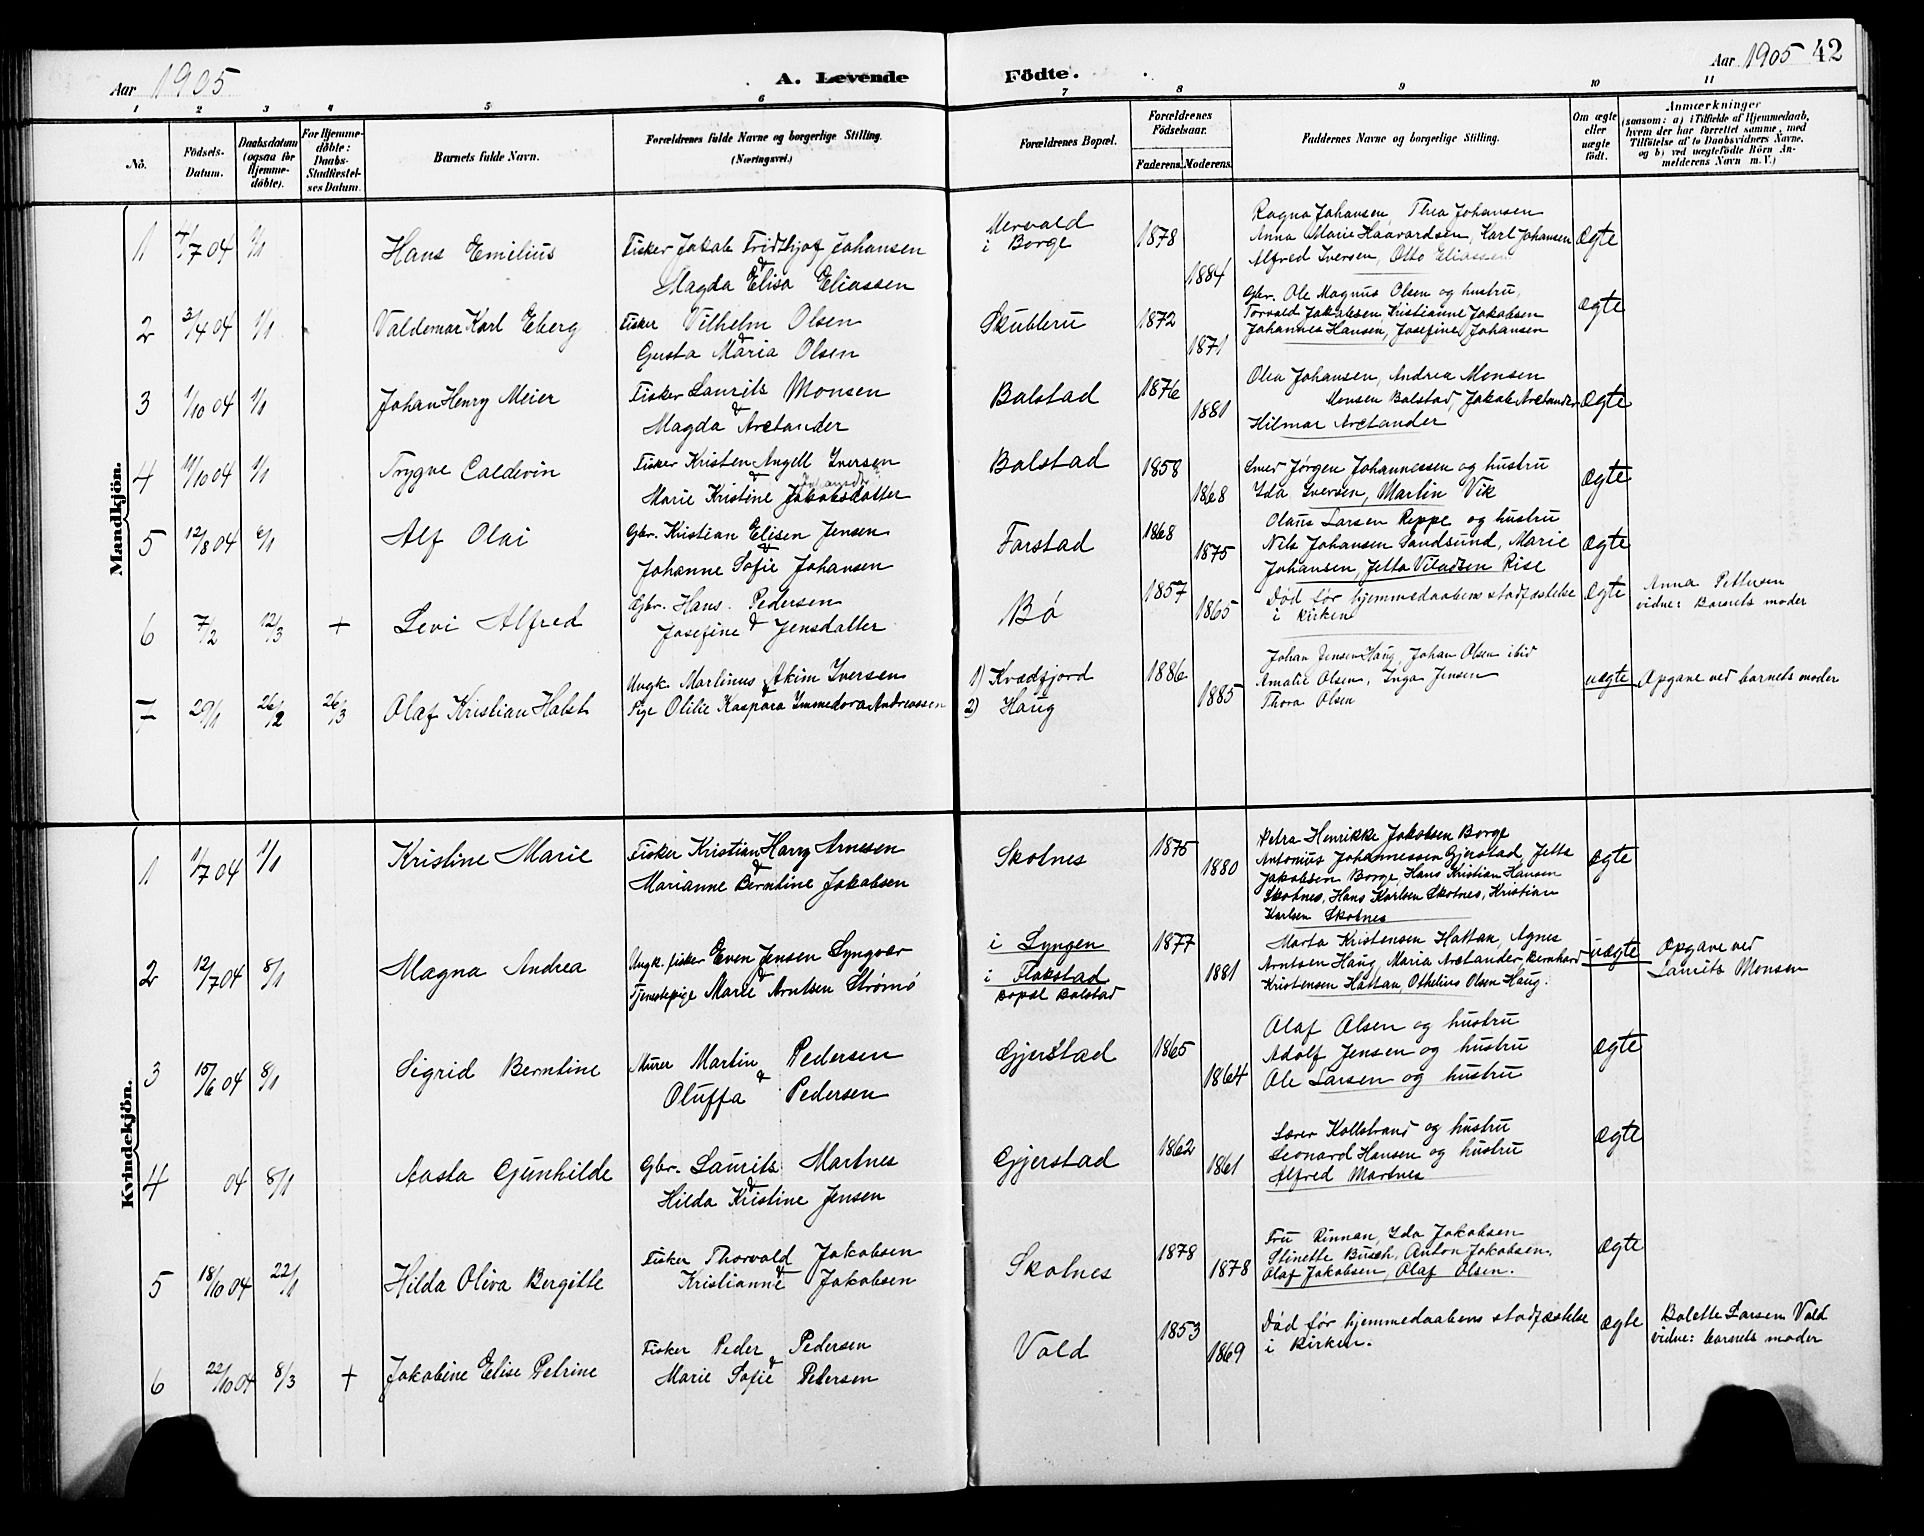 Aar 1905
A. Levende Födte.
Aar 1905 42
1 2 3 4 5 6 7 8 9 10 11
Nò.
Födsels-Datum.
Daabsdatum (ogsaa for Hjemme-döbte).
For Hjemme-döbte: Daabs-Stadfæstel-ses Datum.
Barnets fulde Navn.
Forældrenes fulde Navne og borgerlige Stilling.
(Næringsvei.)
Forældrenes Bopæl.
Forældrenes Födselsaar.
Faderens. Moderens.
Faddernes Navne og borgerlige Stilling.
Om ægte eller uægte födt.
Anmærkninger
(saasom: a) i Tilfælde af Hjemmedaab,
hvem der har forrettet samme, med
Tilföielse af to Daabsvidners Navne,
og b) ved uægtefödte Börn An-
melderens Navn m. V.)
Mandkjön.
1 7/7 04 1/1 Hans Emilius
Fisker Jakob Fridthjof Johansen
&
Magda Elisa Eliassen
Mervold
i Borge
1878 1884
Ragna Johansen, Thea Johansen
Anna Marie Haavardsen, Karl Johansen
Alfred Iversen, Otto Eliassen
Ægte
2 3/4 04 1/1 Valdemar Karl Eberg
Fisker Vilhelm Olsen
&
Gusta Maria Olsen
Skulbru
1872 1871
Gbr. Ole Magnus Olsen og hustru,
Torvald Jakobsen, Kristianne Jakobsen
Johannes Hansen, Josefine Johansen
Ægte
3 1/10 04 1/1 Johan Henry Meier
Fisker Laurits Monsen
&
Magda Arctander
Balstad
1876 1881
Olea Johansen, Andrea Monsen
Monsen Balstad, Jakob Arctander
Hilmar Arctander
Ægte
4 11/10 04 1/1 Trygve Caldevin
Fisker Kristen Angell Iversen
&
Marie Kristine Jakobsdatter
Balstad
1858 1868
Smed Jørgen Johannessen og hustru
Ida Iversen, Martin Vik
Ægte
5 12/8 04 6/1 Alf Olai
Gbr. Kristian Elisen Jensen
&
Johanne Sofie Johansen
Farstad
1868 1875
Olaus Larsen Reppe og hustru
Nils Johansen Sandsund, Marie
Johansen, Jetta Viladsen Rise
Ægte
6 7/2 12/3 + Levi Alfred
Gbr. Hans Pedersen
&
Josefine Jensdatter
Bø
1857 1865
Død før hjemmedaabens stadfæstelse
i kirken
Ægte
Anna Pettersen
vidne: Barnets moder
7 29/1 26/2 26/3 Olaf Kristian Halst
Ungk. Martinus Akim Iversen
&
Pige Otilie Kaspara Immedora Andreassen
1) Kvædfjord
2) Haug
1886 1885
Johan Jensen Haug, Johan Olsen ibid
Amalie Olsen, Inga Jensen
Thora Olsen
uægte
Opgave ved barnets moder
Kvindekjön.
1 1/7 04 1/1 Kristine Marie
Fisker Kristian Harry Arnesen
&
Marianne Berntine Jakobsen
Skotnes
1875 1880
Petra Henrikke Jakobsen Borge
Antonius Johannessen Gjerstad, Jetta
Jakobsen Borge, Hans Kristian Hansen
Skotnes, Hans Karlsen Skotnes, Kristian
Karlsen Skotnes
Ægte
2 12/7 04 8/1 Magna Andrea
Ungk. fisker Even Jensen Lyngvær
&
Tjenestepige Marie Arntsen Strømø
i Lyngen
i Flakstad
Bopæl Balstad
1877 1881
Marta Kristensen Hattan, Agnes
Arntsen Haug, Maria Arctander, Bernhard
Kristensen Hattan, Othelius Olsen Haug.
uægte
Opgave ved
Laurits Monsen
3 15/6 04 8/1 Sigrid Berntine
Murer Martin Pedersen
&
Oluffa Pedersen
Gjerstad
1865 1864
Olaf Olsen og hustru
Adolf Jensen og hustru
Ole Larsen og hustru
Ægte
4 04 8/1 Aasta Gunhilde
Gbr. Laurits Martnes
&
Hilda Kristine Jensen
Gjerstad
1862 1861
Lærer Kollstrand og hustru
Leonard Hansen og hustru
Alfred Martnes
Ægte
5 18/10 04 22/1 Hilda Oliva Bergitte
Fisker Thorvald Jakobsen
&
Kristianne Jakobsen
Skotnes
1878 1878
Fru Rinnan, Ida Jakobsen
Stinette Busch, Anton Jakobsen,
Olaf Jakobsen, Olaf Olsen.
Ægte
6 22/10 04 8/3 + Jakobine Elise Petrine
Fisker Peder Pedersen
&
Marie Sofie Pedersen
Vold
1853 1869
Død før hjemmedaabens stadfæstelse
i Kirken.
Ægte
Bolette Larsen Vold
vidne: barnets moder